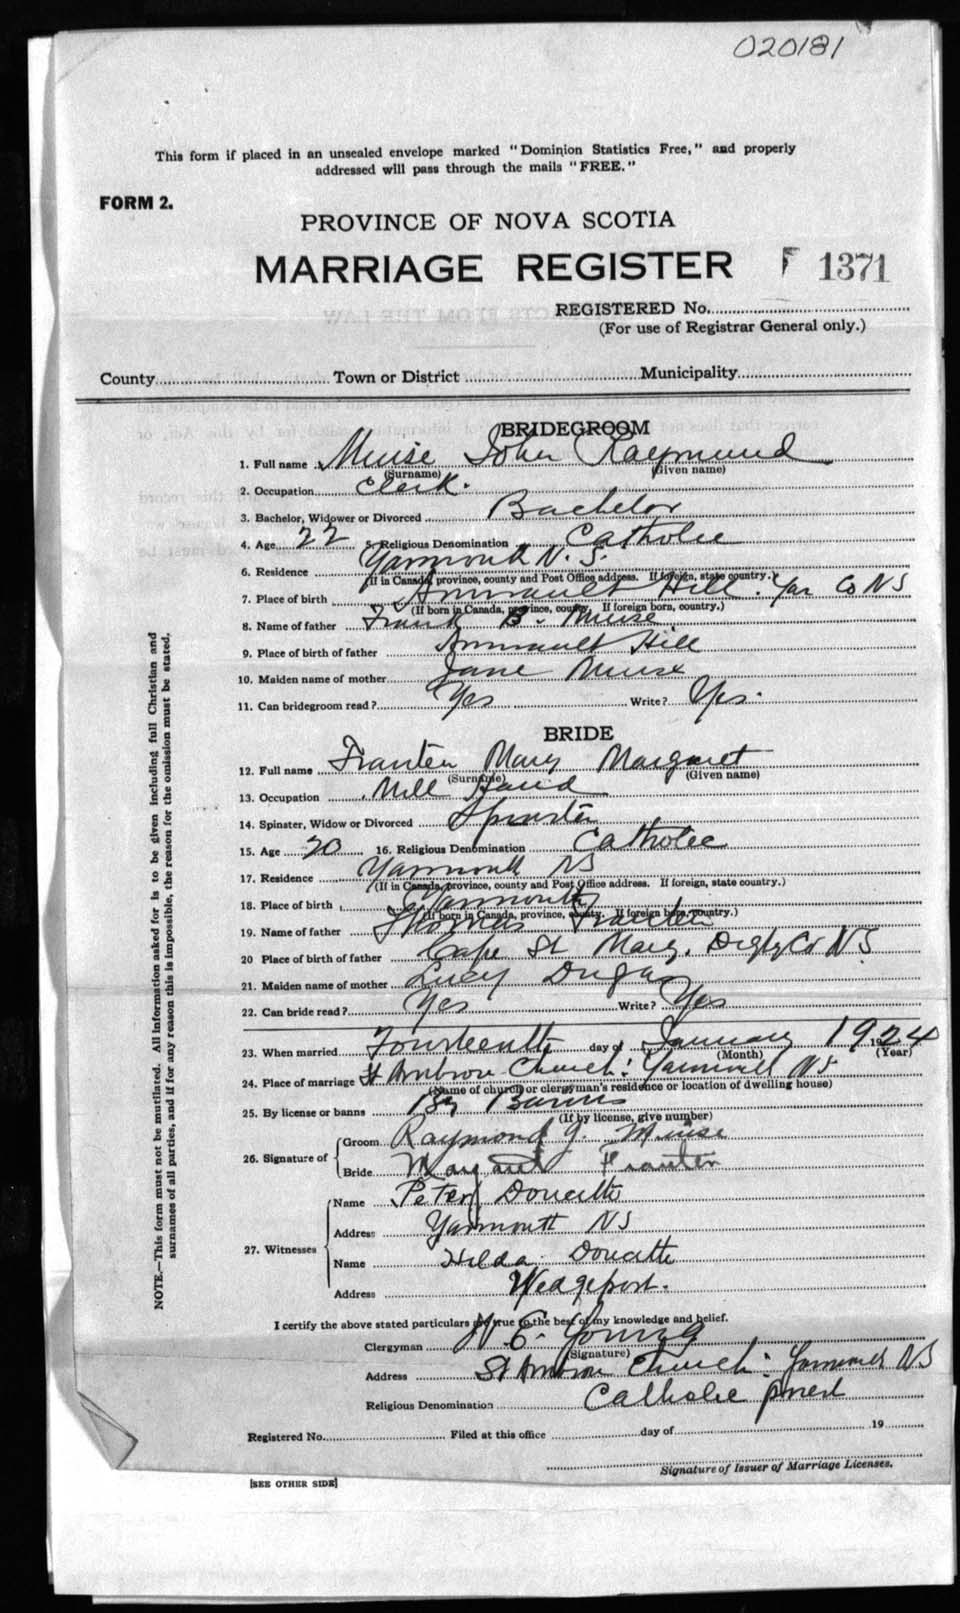 020181
This form if placed in an unsealed envelope marked "Dominion Statistics Free," and properly
addressed will pass through the mails "FREE."
FORM 2.
PROVINCE OF NOVA SCOTIA
MARRIAGE REGISTER 1371
REGISTERED No.
(For use of Registrar General only.)
County Town or District Municipality
BRIDEGROOM
1. Full name Muise John Raymund
(Surname) (Given name)
2. Occupation Clerk.
3. Bachelor, Widower or Divorced Bachelor
4. Age 22 5. Religious Denomination Catholic
6. Residence Yarmouth N. S.
(If in Canada, province, county and Post Office address. If foreign, state country.)
7. Place of birth Amirault Hill. Yar Co NS
(If born in Canada, province, county. If foreign born, country.)
8. Name of father Frank B. Muise
9. Place of birth of father Amirault Hill
10. Maiden name of mother Jane Muise
11. Can bridegroom read? Yes Write? Yes.
BRIDE
12. Full name Frauten Mary Margaret
(Surname) (Given name)
13. Occupation Mill Hand
14. Spinster, Widow or Divorced Spinster
15. Age 20 16. Religious Denomination Catholic
17. Residence Yarmouth NS
(If in Canada, province, county and Post Office address. If foreign, state country.)
18. Place of birth Yarmouth
(If born in Canada, province, county. If foreign born, country.)
19. Name of father Thomas Frauten
20 Place of birth of father Cape St Mary, Digby Co NS
21. Maiden name of mother Lucy Dugas
22. Can bride read? Yes Write? Yes
23. When married Fourteenth day of January 1924 1924
(Month) (Year)
24. Place of marriage St Ambrose Church: Yarmouth NS
(Name of church or clergyman's residence or location of dwelling house)
25. By license or banns By Banns
(If by license, give number)
26. Signature of Groom Raymond J. Muise
Bride Margaret Frauten
27. Witnesses Name Peter Doucette
Address Yarmouth NS
Name Hilda Doucette
Address Wedgeport.
I certify the above stated particulars are true to the best of my knowledge and belief.
Clergyman W. E. Young
(Signature)
Address St Ambrose Church: Yarmouth NS
Religious Denomination Catholic priest
Registered No. Filed at this office day of 19
Signature of Issuer of Marriage Licenses.
[SEE OTHER SIDE]
NOTE.—This form must not be mutilated. All information asked for is to be given including full Christian and
surnames of all parties, and if for any reason this is impossible, the reason for the omission must be stated.